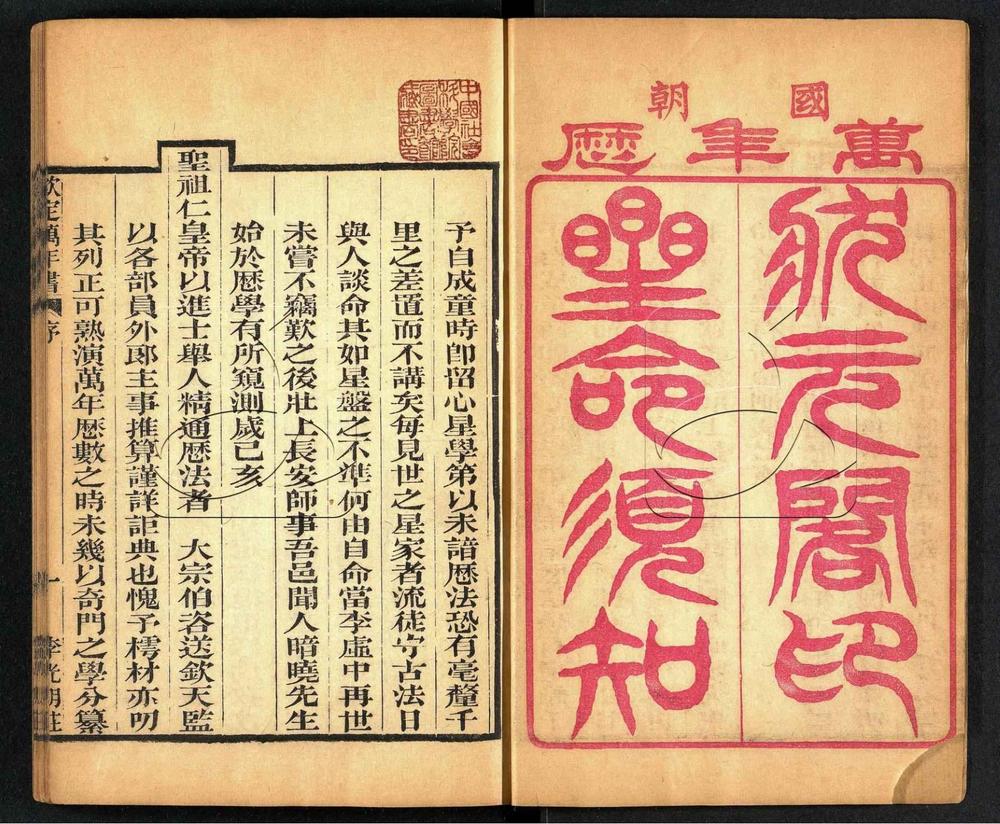 國朝
萬年厯
狀元閣印
星命須知
中國社會
科學院
圖書館
藏書印
予自成童時卽留心星學第以未諳厯法恐有毫釐千
里之差置而不講矣每見世之星家者流徒守古法日
與人談命其如星盤之不準何由自命當李虛中再世
未嘗不竊歎之後壯上長安師事吾邑聞人暗曉先生
始於厯學有所窺測歲己亥
聖祖仁皇帝以進士舉人精通厯法者 大宗伯咨送欽天監
以各部員外郎主事推算謹詳詎典也愧予樗材亦叨
其列正可熟演萬年厯數之時未幾以奇門之學分纂
欽定萬年書 序 一 李光明莊